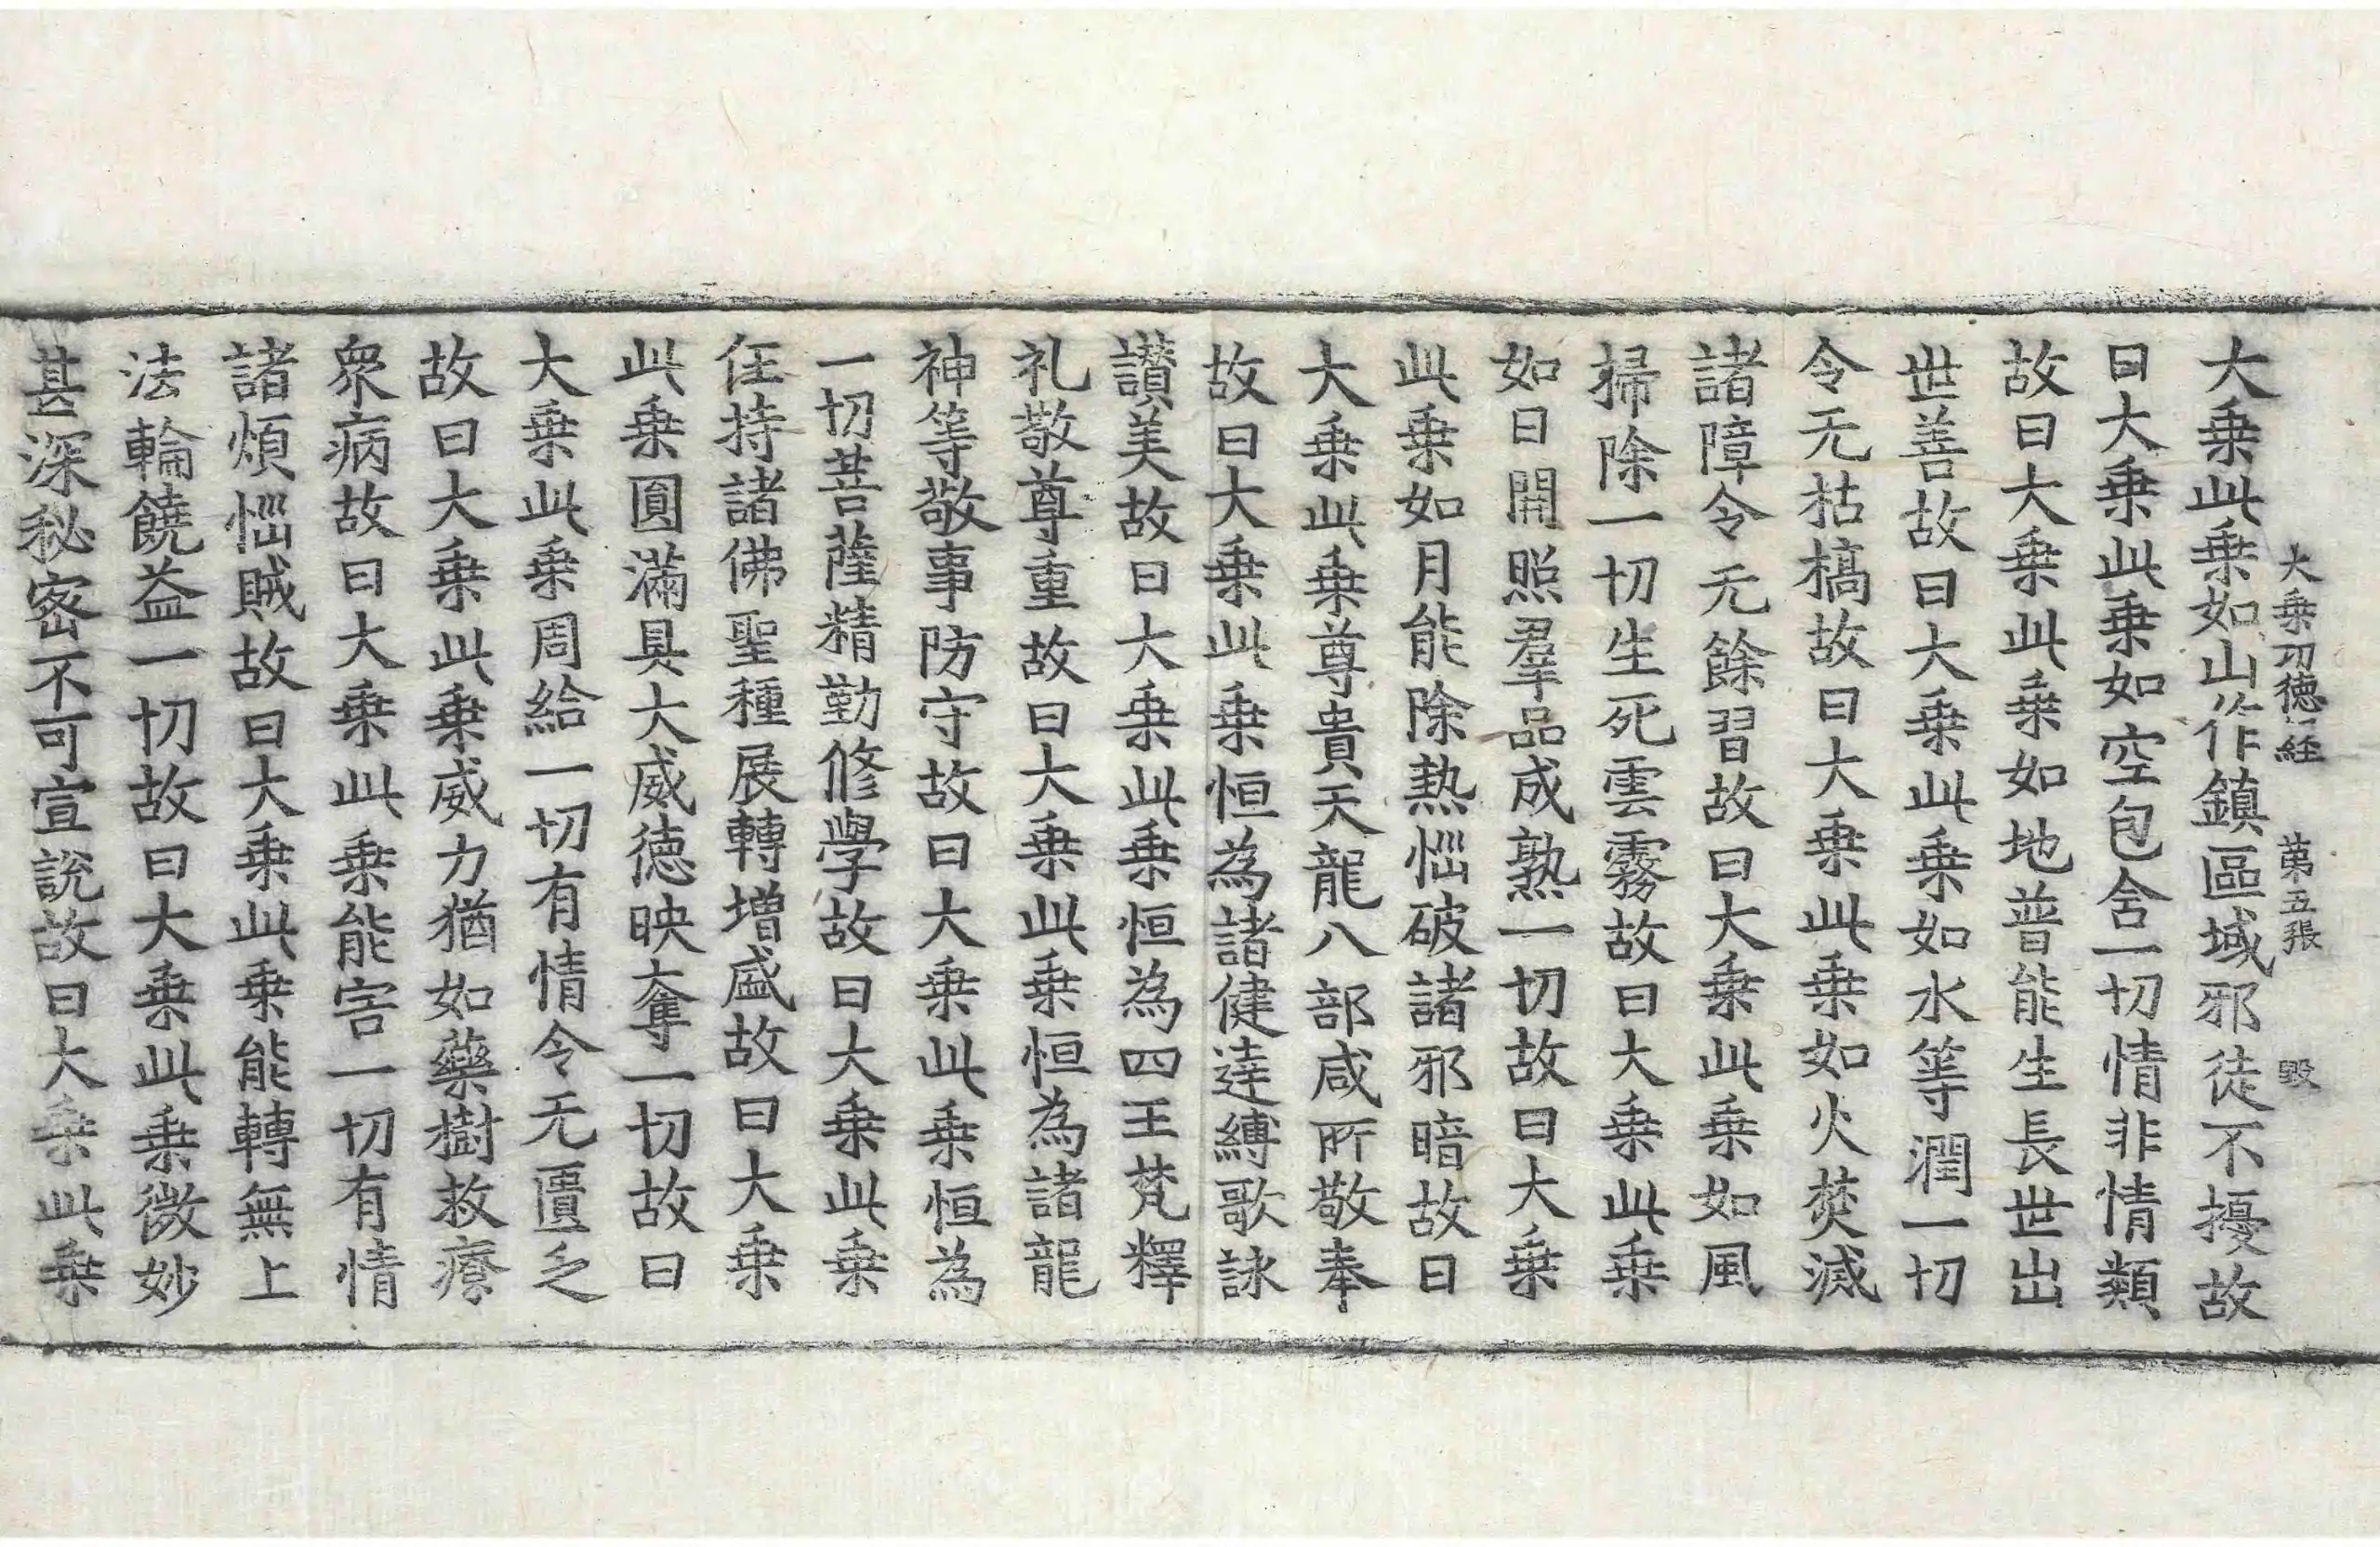 大乗功徳経　第五張　毁
大乗此乗如山作鎮區域邪徒不擾故
曰大乗此乗如空包含一切情非情類
故曰大乗此乗如地普能生長世出
世善故曰大乗此乗如水等潤一切
令无枯槁故曰大乗此乗如火焚滅
諸障令无餘習故曰大乗此乗如風
掃除一切生死雲霧故曰大乗此乗
如日開照羣品成熟一切故曰大乗
此乗如月能除熱惱破諸邪暗故曰
大乗此乗尊貴天龍八部咸所敬奉
故曰大乗此乗恒為諸健達縛歌詠
讃美故曰大乗此乗恒為四王梵釋
礼敬尊重故曰大乗此乗恒為諸龍
神等敬事防守故曰大乗此乗恒為
一切菩薩精勤修學故曰大乗此乗
任持諸佛聖種展轉增盛故曰大乗
此乗圓滿具大威德映奪一切故曰
大乗此乗周給一切有情令无匱乏
故曰大乗此乗威力猶如藥樹救療
衆病故曰大乗此乗能害一切有情
諸煩惱賊故曰大乗此乗能轉無上
法輪饒益一切故曰大乗此乗微妙
甚深秘密不可宣說故曰大乗此乗